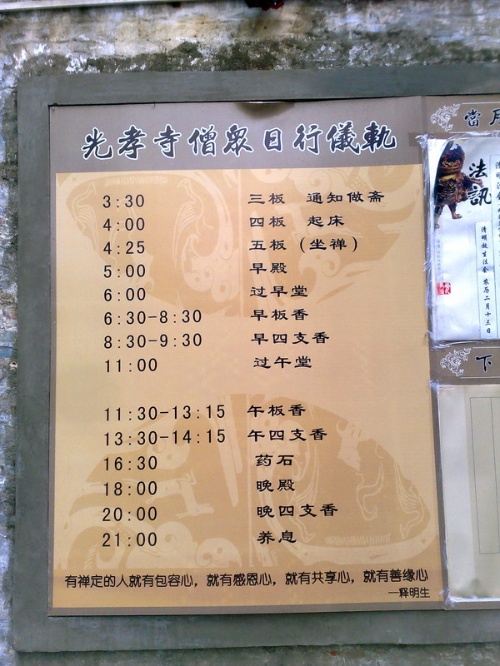 光孝寺僧眾日行儀軌
3:30 三板 通知做斋
4:00 四板 起床
4:25 五板（坐禅）
5:00 早殿
6:00 过早堂
6:30-8:30 早板香
8:30-9:30 早四支香
11:00 过午堂
11:30-13:15 午板香
13:30-14:15 午四支香
16:30 药石
18:00 晚殿
20:00 晚四支香
21:00 养息
有禅定的人就有包容心，就有感恩心，就有共享心，就有善缘心
—释明生
當月
法訊
清明放生法会 农历二月十三日
下